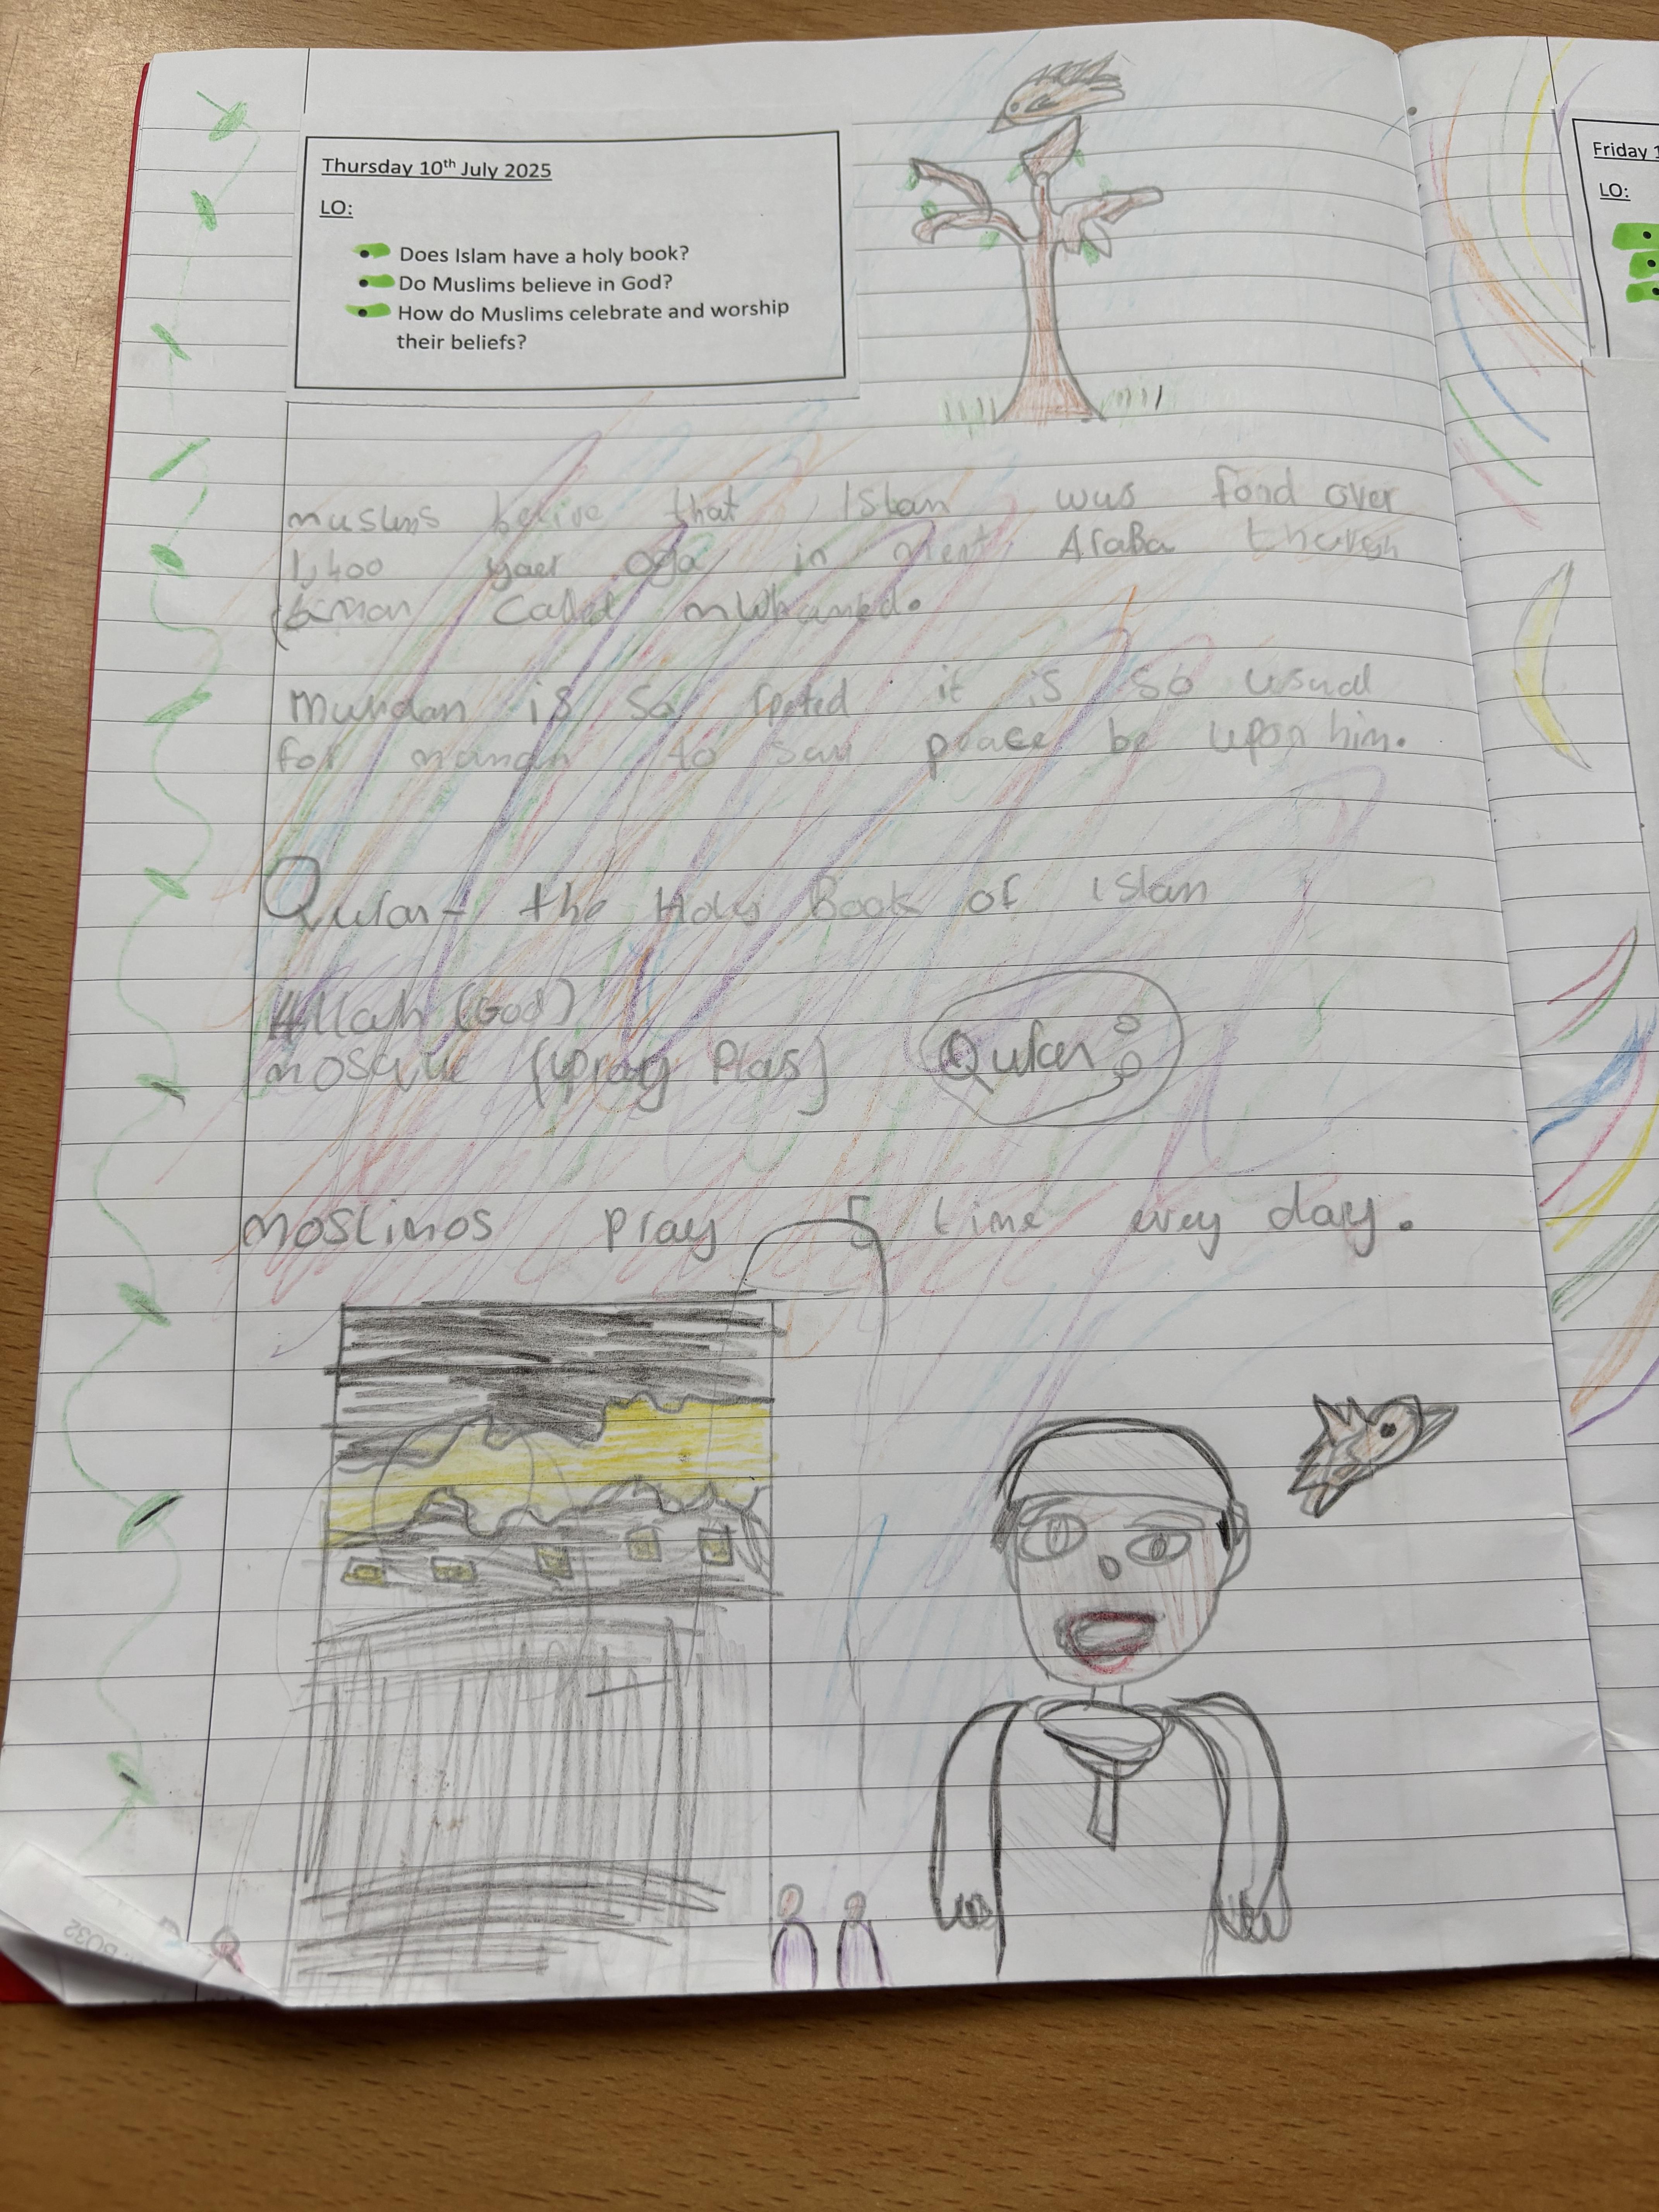 Thursday 10th July 2025
LO:
Does Islam have a holy book?
Do Muslims believe in God?
How do Muslims celebrate and worship
their beliefs?
Friday 1
LO:
muslims belive that Islam wus fond over
1,400 yaer oga in Araba
a man called
is so it is so usual
for to say peace be upon him.
Quran - the Holy Book of Islam
Allah (God)
mosque (pray Plas)
Quran
moslimos pray 5 time evrey day.
BO32